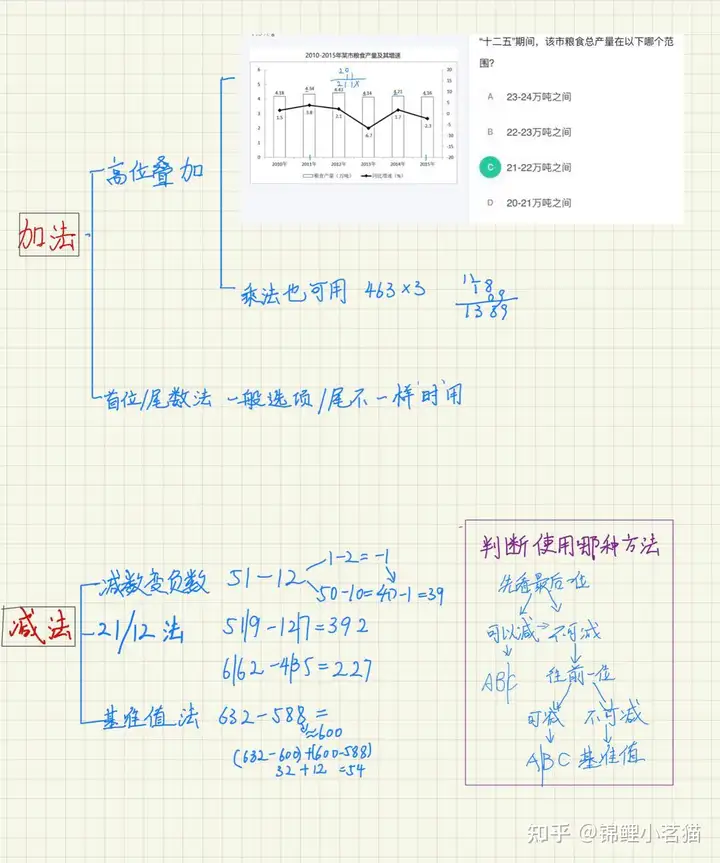 "十二五"期间，该市粮食总产量在以下哪个范
围?
2010-2015年某市粮食产量及其增速
20
11
211X
6
5
4
3
2
1
0
20
15
10
5
0
-5
-10
-15
-20
4.18
4.34
4.43
4.14
4.21
4.16
1.5
3.8
2.1
-6.7
1.7
-2.3
2010年
2011年
2012年
2013年
2014年
2015年
粮食产量（万吨）
同比增速（%）
A 23-24万吨之间
B 22-23万吨之间
C 21-22万吨之间
D 20-21万吨之间
加法
高位叠加
乘法也可用 463×3
12
18
09
1389
首位/尾数法 一般选项/尾不一样时用
减法
减数变负数 51-12
1-2=-1
50-10=40-1=39
21/12法 51|9-12|7=392
6|62-4|35=227
基准值法 632-588=
≈600
(632-600)+(600-588)
32+12=54
判断使用哪种方法
先看最后一位
可以减 不可减
AB|C 往前一位
可减 不可减
A|BC 基准值
知乎 @锦鲤小茗猫